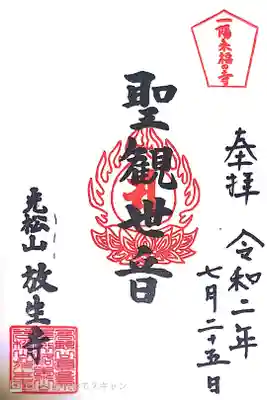 一陽来福の寺
奉拝
令和二年
七月二十五日
聖観世音
光松山
放生寺